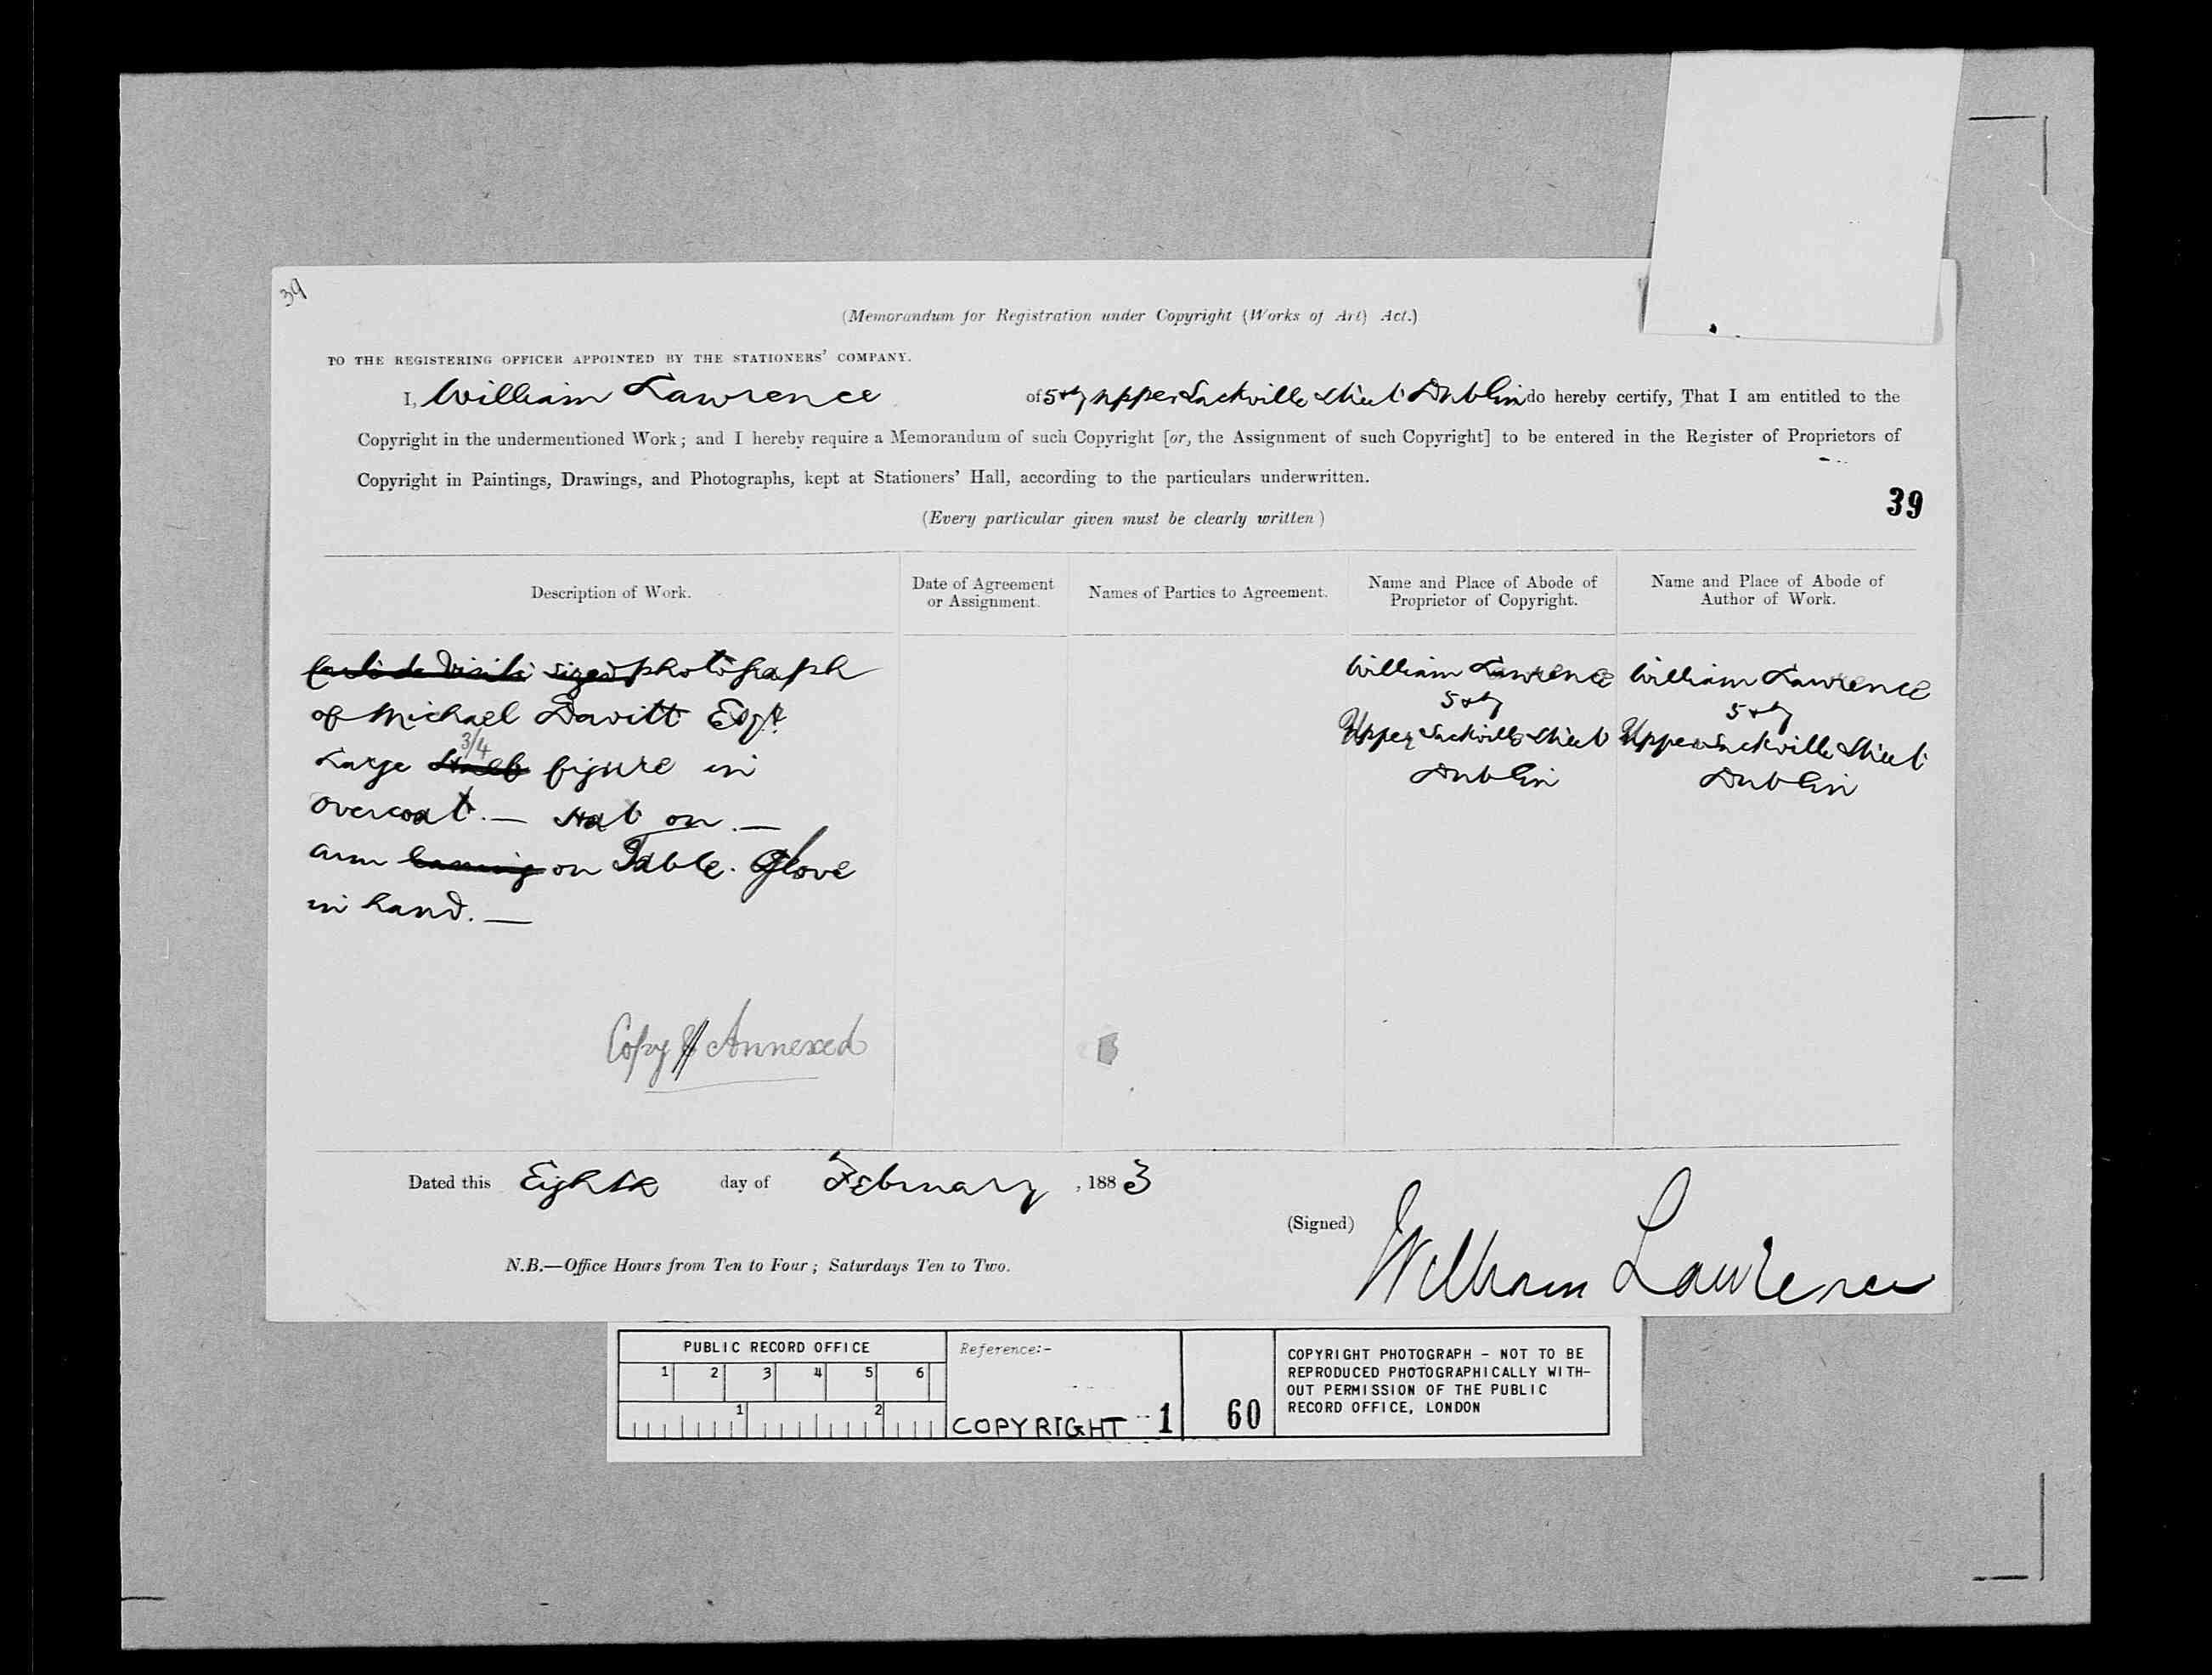 39
(Memorandum for Registration under Copyright (Works of Art) Act.)
TO THE REGISTERING OFFICER APPOINTED BY THE STATIONERS' COMPANY.
I, William Lawrence of 5 & 7 Upper Sackville Street Dublin do hereby certify, That I am entitled to the
Copyright in the undermentioned Work; and I hereby require a Memorandum of such Copyright [or, the Assignment of such Copyright] to be entered in the Register of Proprietors of
Copyright in Paintings, Drawings, and Photographs, kept at Stationers' Hall, according to the particulars underwritten.
39
(Every particular given must be clearly written)
Description of Work.
Date of Agreement
or Assignment.
Names of Parties to Agreement.
Name and Place of Abode of
Proprietor of Copyright.
Name and Place of Abode of
Author of Work.
Carte de Visite sized photograph
of Michael Davitt Esqr.
3/4
Large Half figure in
overcoat. — Hat on. —
arm leaning on Table. Glove
in hand. —
Copy Annexed
William Lawrence
5 & 7
Upper Sackville Street
Dublin
William Lawrence
5 & 7
Upper Sackville Street
Dublin
Dated this Eighth day of February, 1883
(Signed) William Lawrence
N.B.—Office Hours from Ten to Four; Saturdays Ten to Two.
PUBLIC RECORD OFFICE
1 2 3 4 5 6
1 2
Reference:-
COPYRIGHT 1
60
COPYRIGHT PHOTOGRAPH - NOT TO BE
REPRODUCED PHOTOGRAPHICALLY WITH-
OUT PERMISSION OF THE PUBLIC
RECORD OFFICE, LONDON